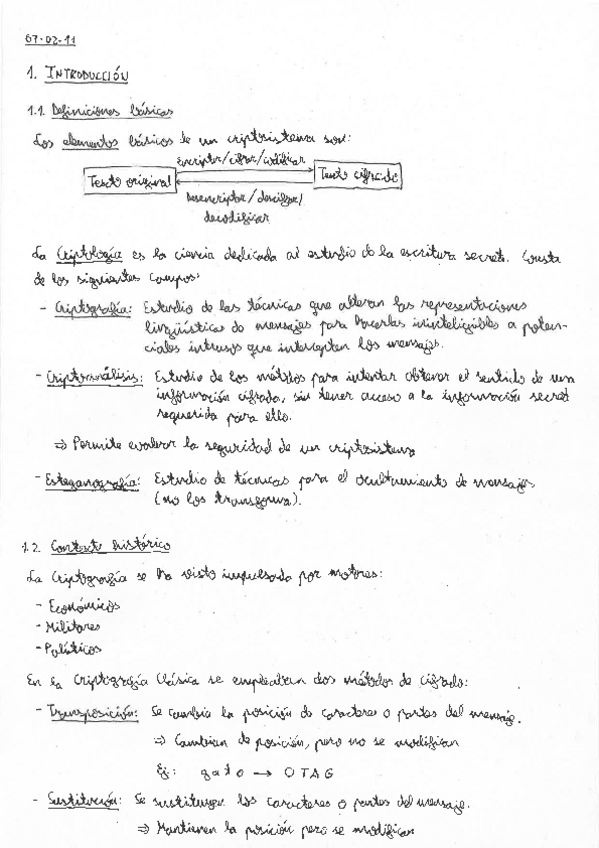 07-02-11
1. INTRODUCCIÓN
1.1. Definiciones básicas
Los elementos básicos de un criptosistema son:
Encriptar/cifrar/codificar
Texto original
Texto cifrado
Desencriptar/descifrar/
decodificar
La Criptología es la ciencia dedicada al estudio de la escritura secreta. Consta
de los siguientes campos:
- Criptografía: Estudio de las técnicas que alteran las representaciones
lingüísticas de mensajes para hacerlas ininteligibles a poten-
ciales intrusos que intercepten los mensajes.
- Criptoanálisis: Estudio de los métodos para intentar obtener el sentido de una
información cifrada, sin tener acceso a la información secret
requerida para ello.
⇒ Permite evaluar la seguridad de un criptosistema
- Esteganografía: Estudio de técnicas para el ocultamiento de mensajes
(no los transforma).
1.2. Contexto histórico
La Criptografía se ha visto impulsada por motores:
- Económicos
- Militares
- Políticos
En la Criptografía Clásica se empleaban dos métodos de cifrado:
- Transposición: Se cambia la posición de caracteres o partes del mensaje.
⇒ Cambian de posición, pero no se modifican
Ej: gato → OTAG
- Sustitución: Se sustituyen los caracteres o partes del mensaje.
⇒ Mantienen la posición pero se modifican